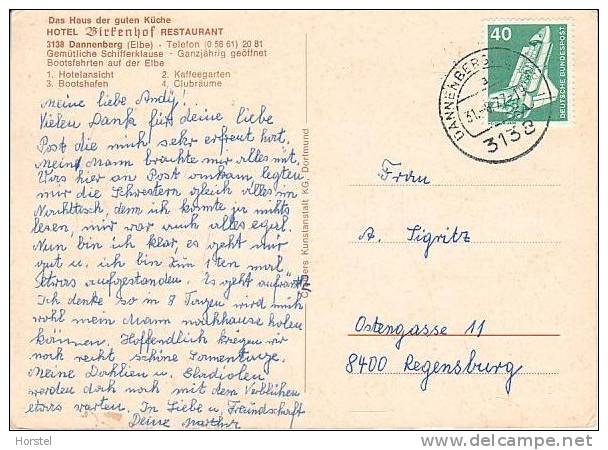 Das Haus der guten Küche
HOTEL Birkenhof RESTAURANT
3138 Dannenberg (Elbe) - Telefon (0 58 61) 20 81
Gemütliche Schifferklause - Ganzjährig geöffnet
Bootsfahrten auf der Elbe
1. Hotelansicht 2. Kaffeegarten
3. Bootshafen 4. Clubräume
Meine liebe Andy!
Vielen Dank für deine liebe
Post die mich sehr erfreut hat.
Mein Mann brachte mir alles mit.
Was hier an Post ankam legten
mir die Schwestern gleich alles in
Nachttisch, denn ich konnte ja nichts
lesen, mir war auch alles egal.
Nun bin ich klar, es geht mir
gut u. ich bin zum 1ten mal
etwas aufgestanden. Es geht aufwärts
Ich denke so in 8 Tagen wird mich
wohl mein Mann nachhause holen
können. Hoffendlich kriegen wir
noch recht schöne Sonnentage.
Meine Dahlien u. Gladiolen
werden doch noch mit dem Verblühen
etwas warten. In Liebe u. Freundschaft
Deine Martha
Kunstanstalt KG, Dortmund
40
DEUTSCHE BUNDESPOST
DANNENBERG
3138
Frau
A. Sigritz
Ostengasse 11
8400 Regensburg
Horstel
www.delcampe.net